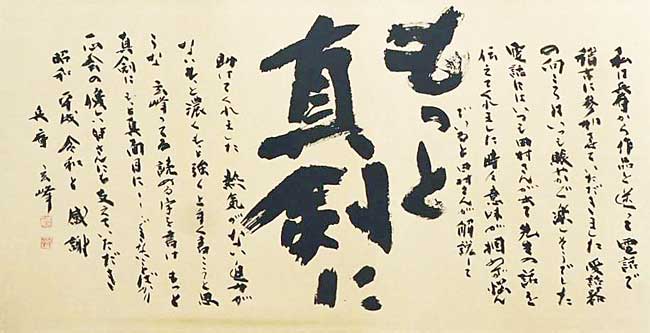 私は兵庫から作品を送って電話で
稽古に参加させていただきました 受話器
の向こうはいつも賑やかで楽しそうでした
電話にはいつも 村さんが出て先生の話を
伝えてくれました 時々意味が掴めず悩ん
でいると 村さんが解説して
もっと
真剣に
助けてくれました 熱気がない 迫 が
ない もっと濃く もっと強く 上手く書こうと思
うな 玄峰 読める字を書け もっと
真剣に もっと真面目に できないとばかり
会の懐しい皆さんにも支えていただき
昭和 平成 令和と 感謝
兵庫 玄峰